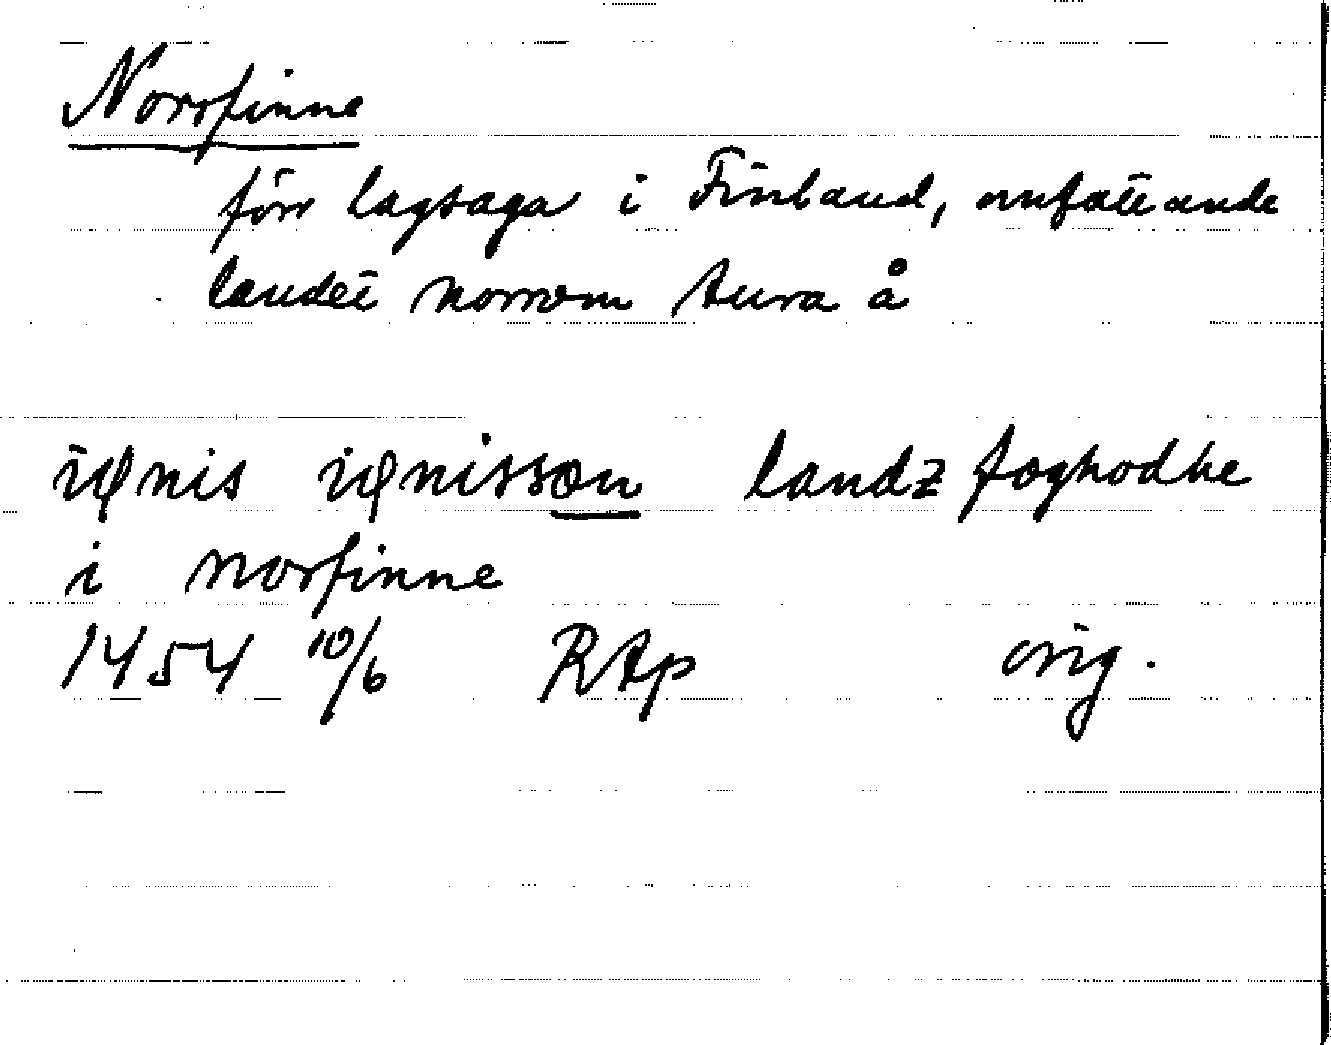 Norrfinne
förr lagsaga i Finland, omfattande
landet norrom Aura å
iønis iønissøn landz foghodhe
i norfinne
1454 10/6 RAp orig.